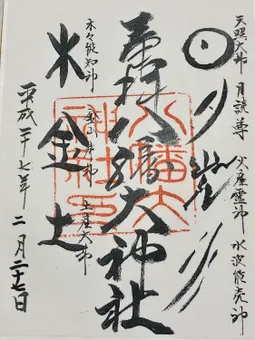 天照大神 月読尊 火産霊神 水波能売神
月
奉拝 八幡大神社
八幡大神社印
久々能知神 土産大神
木 金 土
平成二十七年 二月二十七日